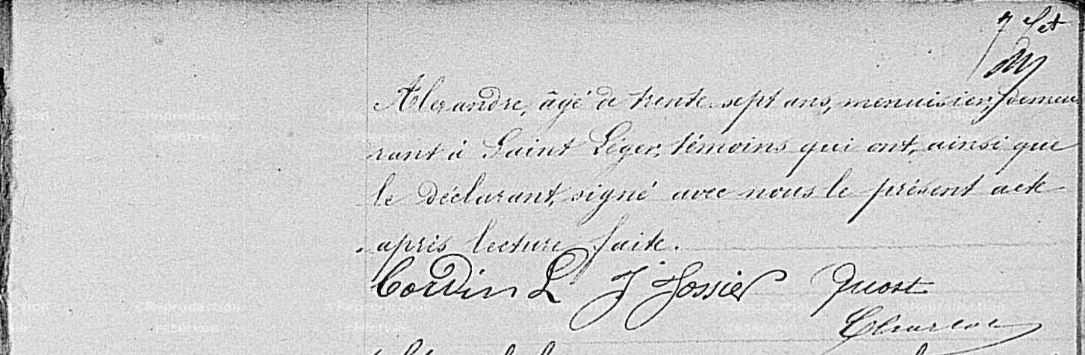 7 
Alexandre, âgé de trente-sept ans, menuisier, demeu
rant à Saint Léger, témoins qui ont, ainsi que
le déclarant, signé avec nous le présent acte
après lecture faite.
Cordin L J Jossier Quost